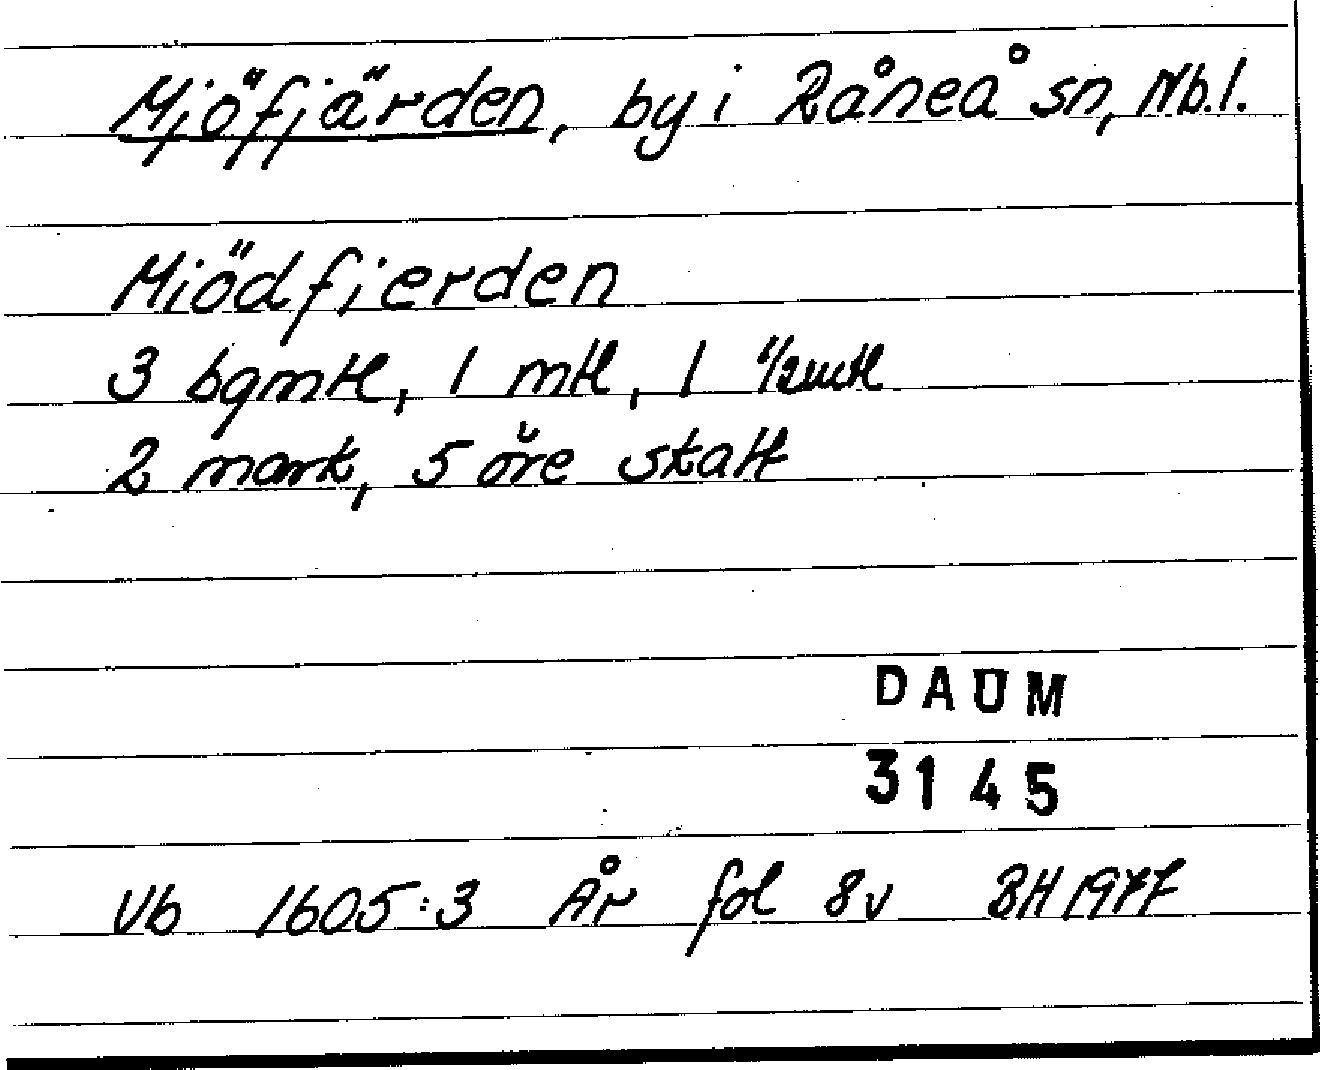 Mjöfjärden, by i Råneå sn, Nb.l.
Miödfjerden
3 bgmtl, 1 mtl, 1 1/2mtl
2 mark, 5 öre skatt
DAUM
3145
Vb 1605:3 År fol 8v BH 1977